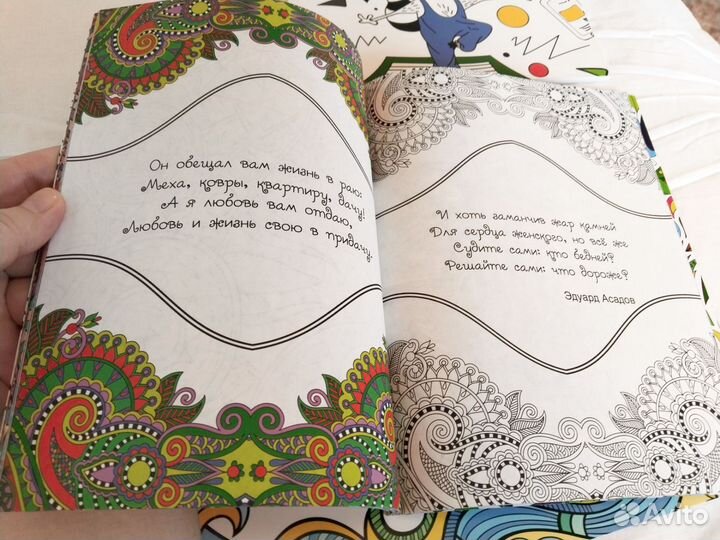 Он обещал вам жизнь в раю:
Меха, ковры, квартиру, дачу!
А я любовь вам отдаю,
Любовь и жизнь свою в придачу.
И хоть заманчив жар камней
Для сердца женского, но всё же
Судите сами: кто бедней?
Решайте сами: что дороже?
Эдуард Асадов
Avito